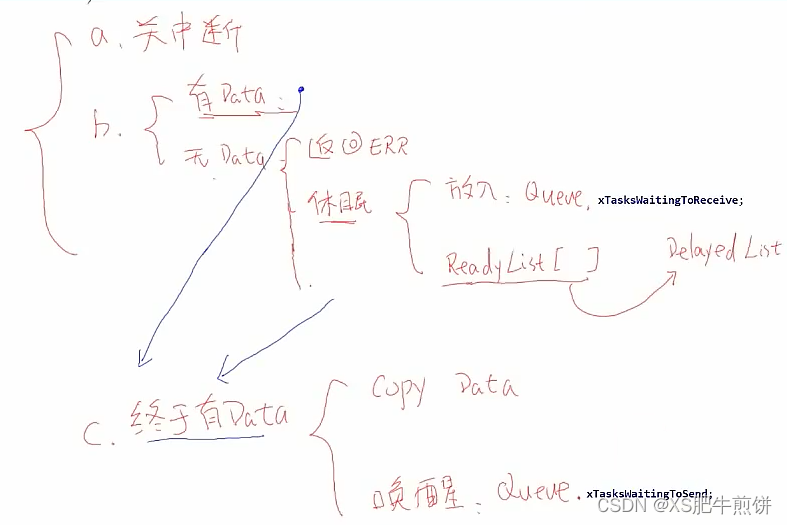 a. 关中断
b.
有Data:
无Data
返回ERR
休眠
放入: Queue. xTasksWaitingToReceive;
ReadyList[ ]
Delayed List
c. 终于有Data
Copy Data
唤醒: Queue. xTasksWaitingToSend;
CSDN @XS肥牛煎饼